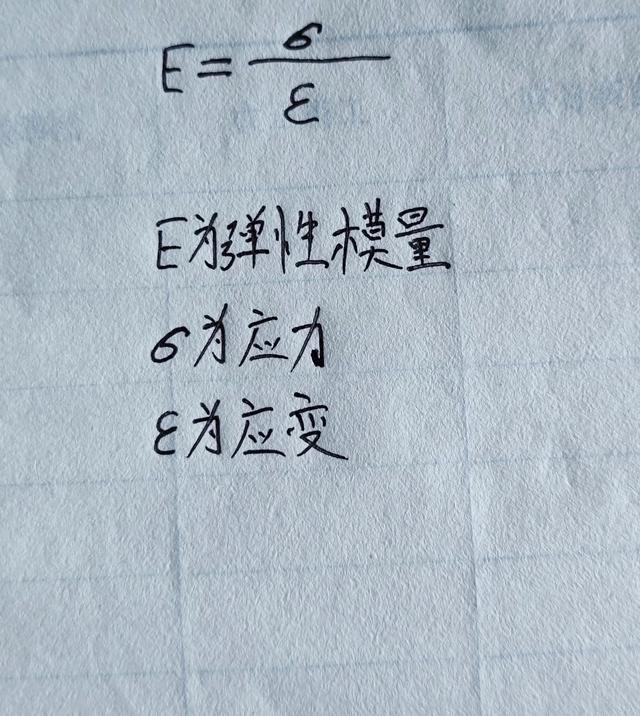 E=σ/ε
E为弹性模量
σ为应力
ε为应变